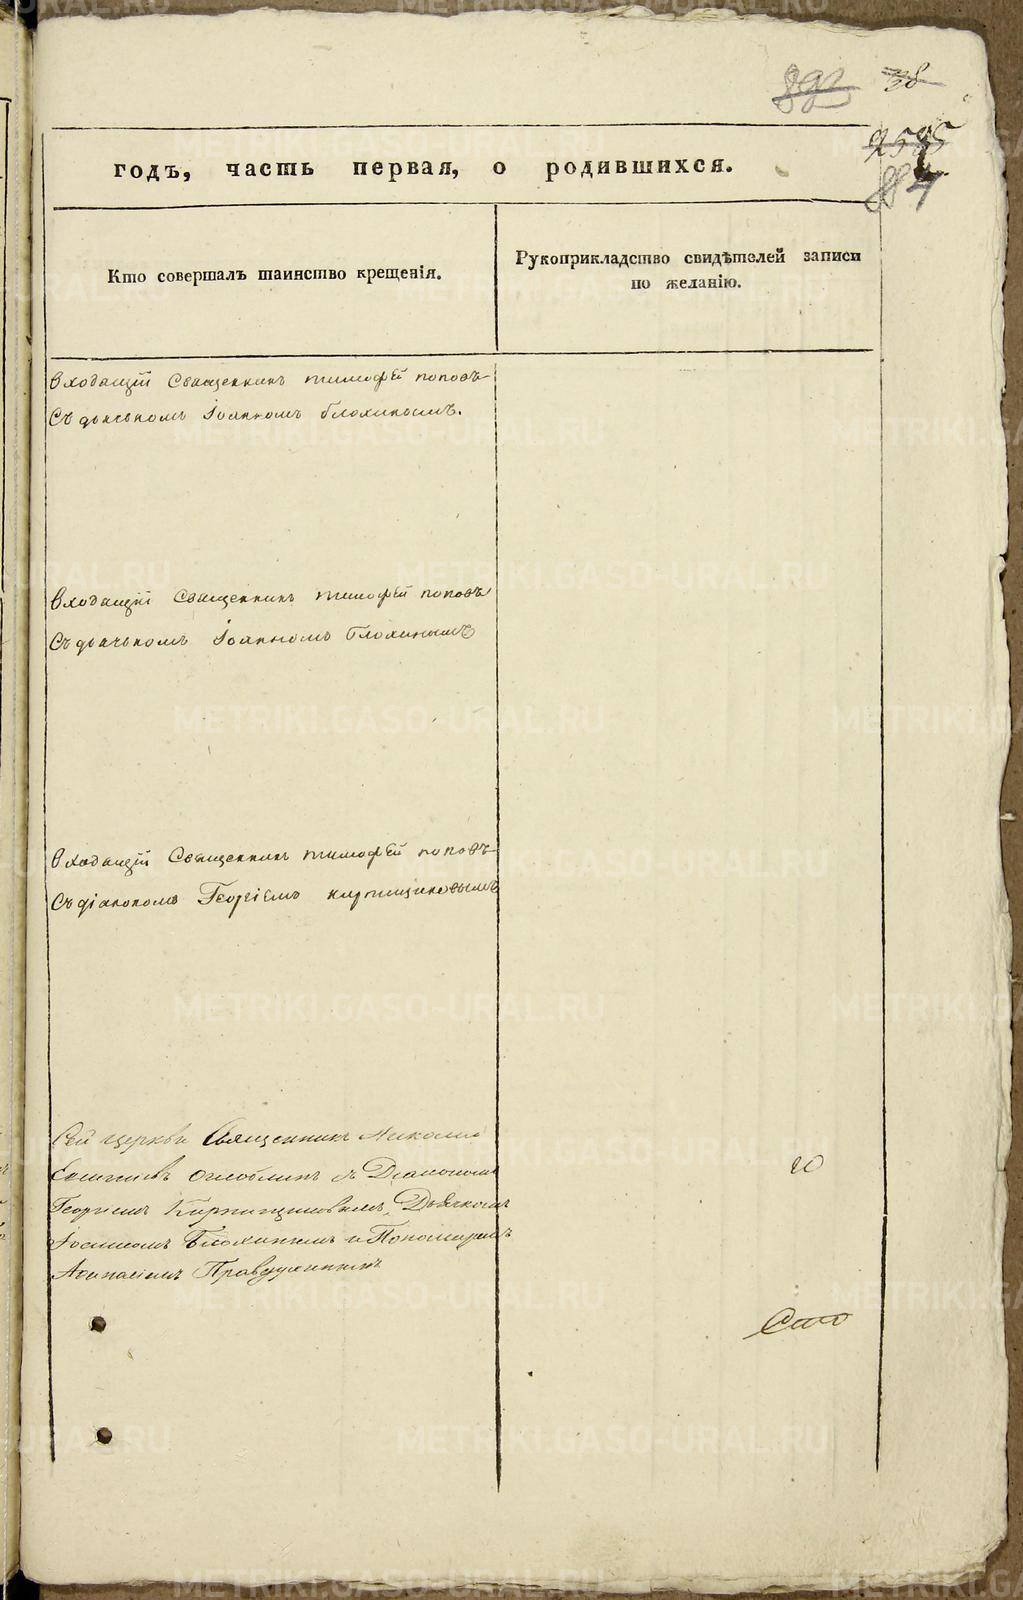 892 38
2585
884
годъ, часть первая, о родившихся.
Кто совершалъ таинство крещенія.
Рукоприкладство свидѣтелей записи
по желанію.
Входящій Священникъ тимофей поповъ
Съ дьячькомъ Іоанномъ блохинымъ.
Входящій Священникъ тимофей поповъ
Съ дьячькомъ Іоанномъ блохинымъ
Входящій Священникъ тимофей поповъ
Съ діакономъ Георгіемъ кирпищиковымъ
Сей церкви Священникъ Николай
Оглоблинъ съ Діакономъ
Георгіемъ Кирпищиковымъ, Дьячкомъ
Іоанномъ Блохинымъ и Пономаремъ
Афанасіемъ Правдухинымъ
METRIKI.GASO-URAL.RU